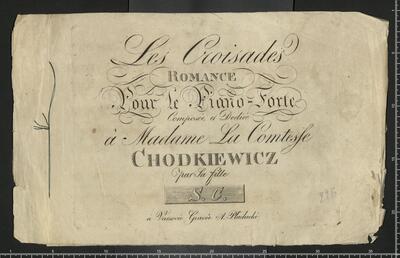 Les Croisades
ROMANCE
Pour le Piano=Forte
Composée et Dediée
à Madame La Comtesse
CHODKIEWICZ
par Sa fille
S. C.
a Varsovie Gravée A. Płachecki